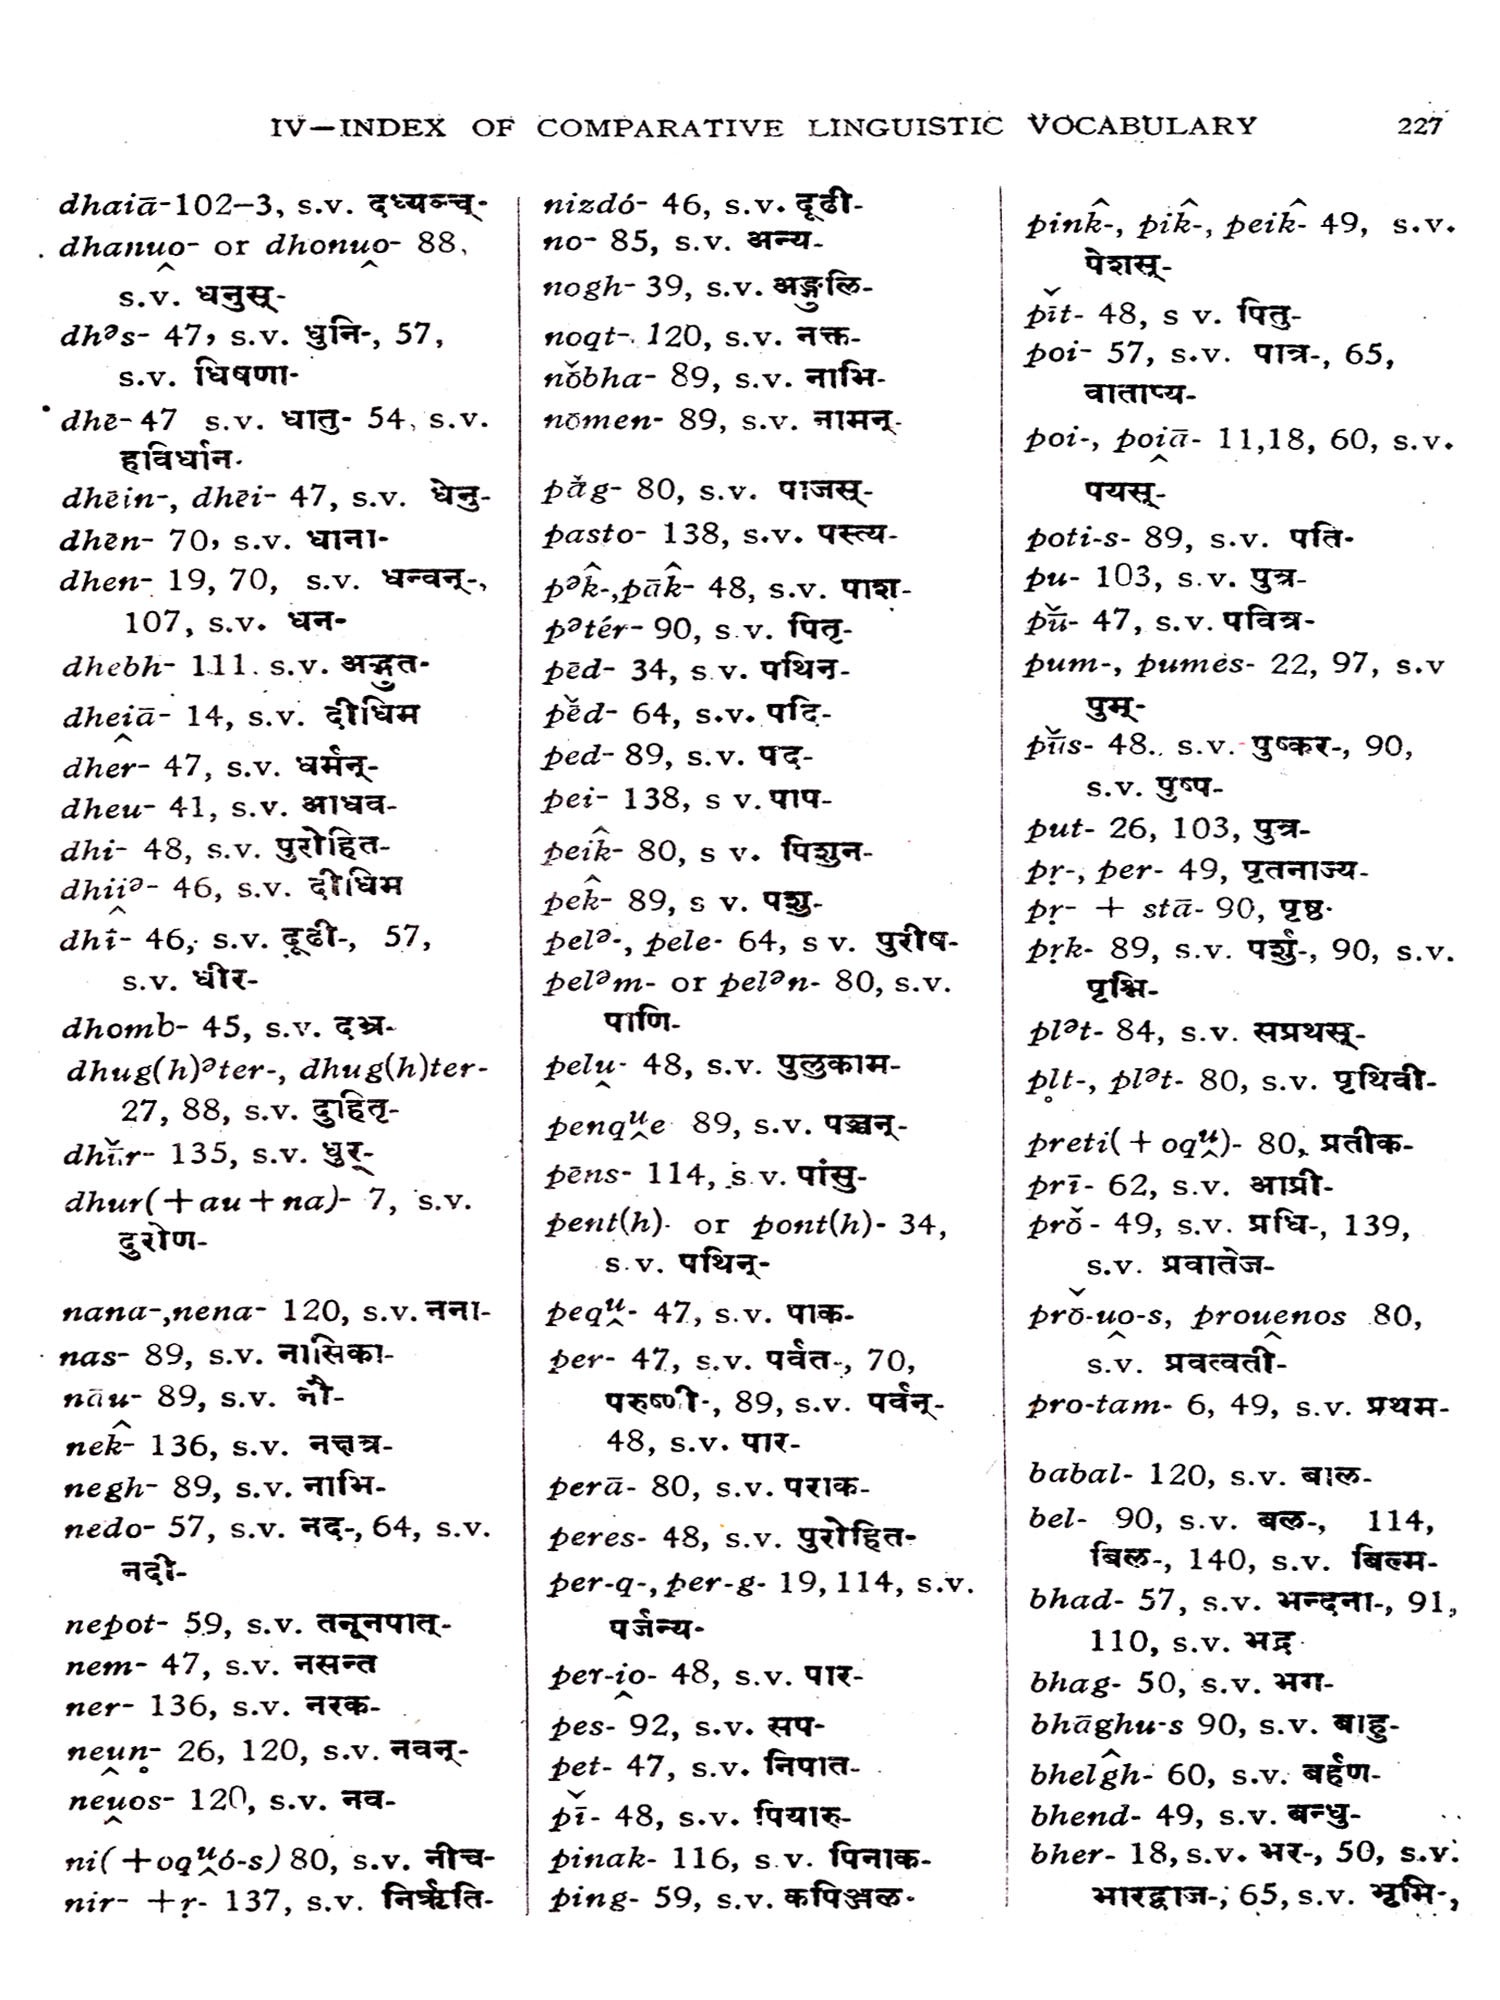 IV—INDEX OF COMPARATIVE LINGUISTIC VOCABULARY 227
dhaiā-102–3, s.v. दध्यञ्च्-
dhanu̯o- or dhonu̯o- 88,
s.v. धनुस्-
dhᵊs- 47, s.v. धुनि-, 57,
s.v. धिषणा-
dhē- 47 s.v. धातु- 54, s.v.
हविर्धान-
dhēin-, dhēi- 47, s.v. धेनु-
dhēn- 70, s.v. धाना-
dhen- 19, 70, s.v. धन्वन्-,
107, s.v. धन-
dhebh- 111. s.v. अद्भुत-
dhei̯ā- 14, s.v. दीधिम
dher- 47, s.v. धर्मन्-
dheu- 41, s.v. आधव-
dhi- 48, s.v. पुरोहित-
dhii̯ᵊ- 46, s.v. दीधिम
dhī- 46, s.v. दूढी-, 57,
s.v. धीर-
dhomb- 45, s.v. दभ्र-
dhug(h)ᵊter-, dhug(h)ter-
27, 88, s.v. दुहितृ-
dhŭ̄r- 135, s.v. धुर्-
dhur(+au+na)- 7, s.v.
दुरोण-
nana-,nena- 120, s.v. नना-
nas- 89, s.v. नासिका-
nāu- 89, s.v. नौ-
nek̂- 136, s.v. नक्षत्र-
negh- 89, s.v. नाभि-
nedo- 57, s.v. नद-, 64, s.v.
नदी-
nepot- 59, s.v. तनूनपात्-
nem- 47, s.v. नसन्त
ner- 136, s.v. नरक-
neu̯n̥- 26, 120, s.v. नवन्-
neu̯os- 120, s.v. नव-
ni(+oqᵘ̯ó-s) 80, s.v. नीच-
nir- +ṛ- 137, s.v. निर्ऋति-
nizdó- 46, s.v. दूढी-
no- 85, s.v. अन्य-
nogh- 39, s.v. अङ्गुलि-
noqt- 120, s.v. नक्त-
nō̆bha- 89, s.v. नाभि-
nōmen- 89, s.v. नामन्-
pā̆g- 80, s.v. पाजस्-
pasto- 138, s.v. पस्त्य-
pᵊk̂-,pāk̂- 48, s.v. पाश-
pᵊtér- 90, s.v. पितृ-
pēd- 34, s.v. पथिन-
pē̆d- 64, s.v. पदि-
ped- 89, s.v. पद-
pei- 138, s v. पाप-
peik̂- 80, s v. पिशुन-
pek̂- 89, s v. पशु-
pelᵊ-, pele- 64, s v. पुरीष-
pelᵊm- or pelᵊn- 80, s.v.
पाणि-
pelu̯- 48, s.v. पुलुकाम-
penqᵘ̯e 89, s.v. पञ्चन्-
pēns- 114, s.v. पांसु-
pent(h)- or pont(h)- 34,
s.v. पथिन्-
peqᵘ̯- 47, s.v. पाक-
per- 47, s.v. पर्वत-, 70,
परुष्णी-, 89, s.v. पर्वन्-
48, s.v. पार-
perā- 80, s.v. पराक-
peres- 48, s.v. पुरोहित-
per-q-, per-g- 19, 114, s.v.
पर्जन्य-
per-i̯o- 48, s.v. पार-
pes- 92, s.v. सप-
pet- 47, s.v. निपात-
pī̆- 48, s.v. पियारु-
pinak- 116, s.v. पिनाक-
ping- 59, s.v. कपिञ्जल-
pink̂-, pik̂-, peik̂- 49, s.v.
पेशस्-
pī̆t- 48, s v. पितु-
poi- 57, s.v. पात्र-, 65,
वाताप्य-
poi-, poi̯ā- 11,18, 60, s.v.
पयस्-
poti-s- 89, s.v. पति-
pu- 103, s.v. पुत्र-
pŭ̄- 47, s.v. पवित्र-
pum-, pumes- 22, 97, s.v
पुम्-
pŭ̄s- 48., s.v. पुष्कर-, 90,
s.v. पुष्प-
put- 26, 103, पुत्र-
pṛ-, per- 49, पृतनाज्य-
pṛ- + stā- 90, पृष्ठ-
pṛk- 89, s.v. पर्शु-, 90, s.v.
पृश्नि-
plᵊt- 84, s.v. सप्रथस्-
pl̥t-, plᵊt- 80, s.v. पृथिवी-
preti(+oqᵘ̯)- 80, प्रतीक-
prī- 62, s.v. आप्री-
prō̆- 49, s.v. प्रधि-, 139,
s.v. प्रवातेज-
prō̆-u̯o-s, prou̯enos 80,
s.v. प्रवत्वती-
pro-tam- 6, 49, s.v. प्रथम-
babal- 120, s.v. बाल-
bel- 90, s.v. बल-, 114,
बिल-, 140, s.v. बिल्म-
bhad- 57, s.v. भन्दना-, 91,
110, s.v. भद्र
bhag- 50, s.v. भग-
bhāghu-s 90, s.v. बाहु-
bhelĝh- 60, s.v. बर्हण-
bhend- 49, s.v. बन्धु-
bher- 18, s.v. भर-, 50, s.v.
भारद्वाज-, 65, s.v. भृमि-,